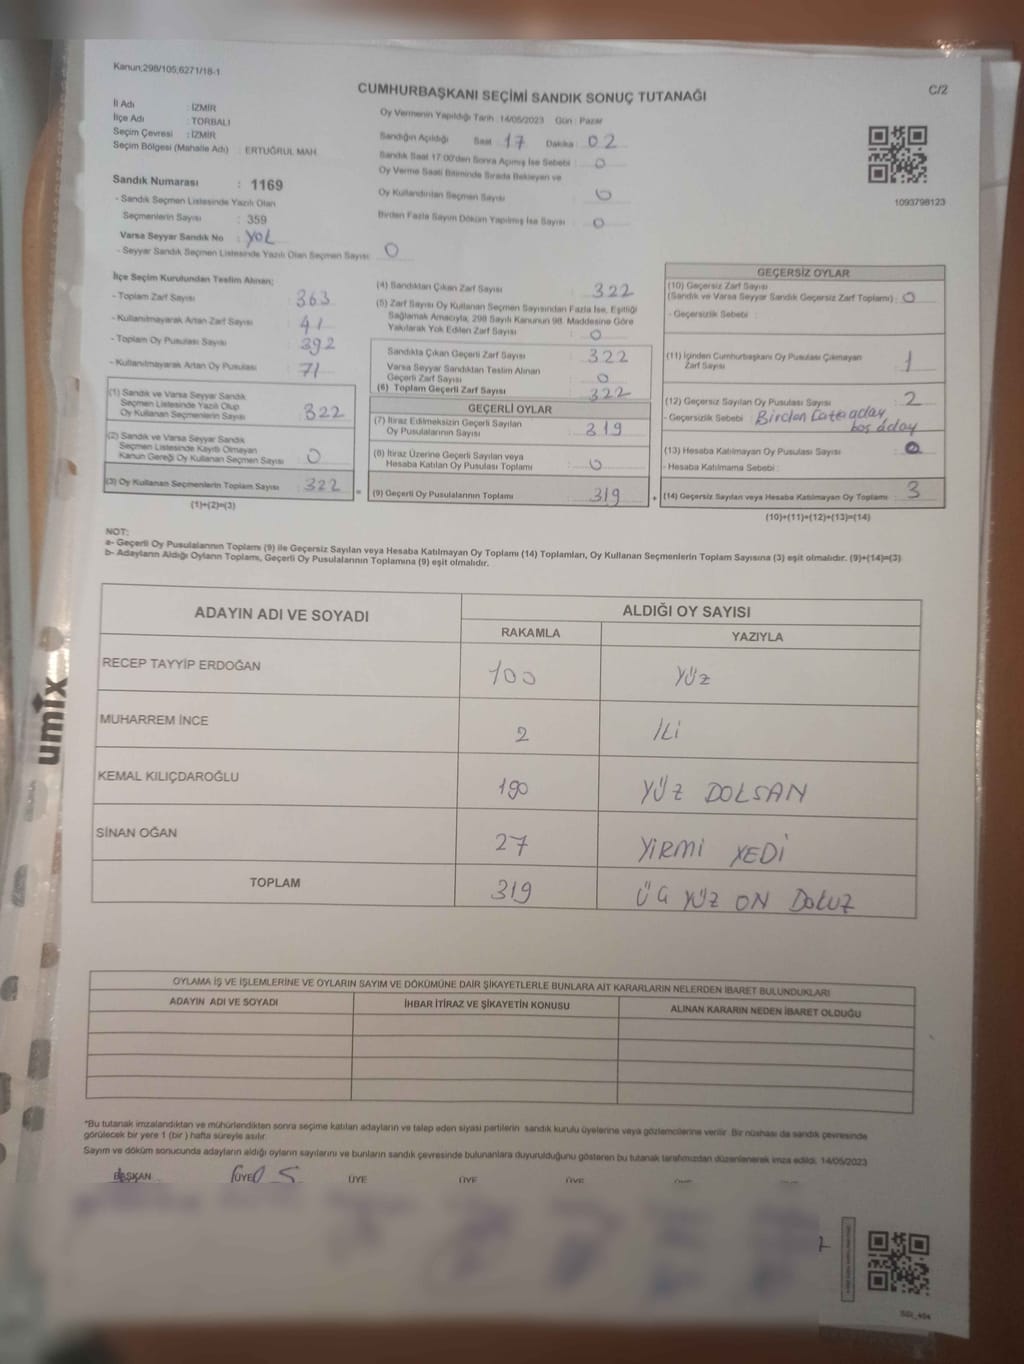 Kanun;298/105;6271/18-1
C/2
CUMHURBAŞKANI SEÇİMİ SANDIK SONUÇ TUTANAĞI
İl Adı : İZMİR
İlçe Adı : TORBALI
Seçim Çevresi : İZMİR
Seçim Bölgesi (Mahalle Adı) : ERTUĞRUL MAH.
Oy Vermenin Yapıldığı Tarih :14/05/2023 Gün : Pazar
Sandığın Açıldığı Saat : 17 Dakika : 02
Sandık Saat 17:00'den Sonra Açımış İse Sebebi : 0
Oy Verme Saati Bitiminde Sırada Bekleyen ve
Oy Kullandırılan Seçmen Sayısı : 0
Birden Fazla Sayım Döküm Yapılmış İse Sayısı : 0
1093798123
Sandık Numarası : 1169
- Sandık Seçmen Listesinde Yazılı Olan
Seçmenlerin Sayısı : 359
Varsa Seyyar Sandık No : YOL
- Seyyar Sandık Seçmen Listesinde Yazılı Olan Seçmen Sayısı: 0
İlçe Seçim Kurulundan Teslim Alınan;
- Toplam Zarf Sayısı : 363
- Kullanılmayarak Artan Zarf Sayısı : 41
- Toplam Oy Pusulası Sayısı : 392
- Kullanılmayarak Artan Oy Pusulası : 71
(1) Sandık ve Varsa Seyyar Sandık
Seçmen Listesinde Yazılı Olup
Oy Kullanan Seçmenlerin Sayısı : 322
(2) Sandık ve Varsa Seyyar Sandık
Seçmen Listesinde Kayıtlı Olmayan
Kanun Gereği Oy Kullanan Seçmen Sayısı : 0
(3) Oy Kullanan Seçmenlerin Toplam Sayısı : 322
(1)+(2)=(3)
(4) Sandıktan Çıkan Zarf Sayısı : 322
(5) Zarf Sayısı Oy Kullanan Seçmen Sayısından Fazla İse, Eşitliği
Sağlamak Amacıyla, 298 Sayılı Kanunun 98. Maddesine Göre
Yakılarak Yok Edilen Zarf Sayısı : 0
Sandıkta Çıkan Geçerli Zarf Sayısı : 322
Varsa Seyyar Sandıktan Teslim Alınan
Geçerli Zarf Sayısı : 0
(6) Toplam Geçerli Zarf Sayısı : 322
GEÇERLİ OYLAR
(7) İtiraz Edilmeksizin Geçerli Sayılan
Oy Pusulalarının Sayısı : 319
(8) İtiraz Üzerine Geçerli Sayılan veya
Hesaba Katılan Oy Pusulası Toplamı : 0
= (9) Geçerli Oy Pusulalarının Toplamı : 319 +
GEÇERSİZ OYLAR
(10) Geçersiz Zarf Sayısı
(Sandık ve Varsa Seyyar Sandık Geçersiz Zarf Toplamı) : 0
- Geçersizlik Sebebi :
(11) İçinden Cumhurbaşkanı Oy Pusulası Çıkmayan
Zarf Sayısı : 1
(12) Geçersiz Sayılan Oy Pusulası Sayısı : 2
- Geçersizlik Sebebi : Birden aday
boş aday
(13) Hesaba Katılmayan Oy Pusulası Sayısı : 0
- Hesaba Katılmama Sebebi :
(14) Geçersiz Sayılan veya Hesaba Katılmayan Oy Toplamı : 3
(10)+(11)+(12)+(13)=(14)
NOT:
a- Geçerli Oy Pusulalarının Toplamı (9) ile Geçersiz Sayılan veya Hesaba Katılmayan Oy Toplamı (14) Toplamları, Oy Kullanan Seçmenlerin Toplam Sayısına (3) eşit olmalıdır. (9)+(14)=(3)
b- Adayların Aldığı Oyların Toplamı, Geçerli Oy Pusulalarının Toplamına (9) eşit olmalıdır.
ADAYIN ADI VE SOYADI ALDIĞI OY SAYISI
RAKAMLA YAZIYLA
RECEP TAYYİP ERDOĞAN 100 YÜZ
MUHARREM İNCE 2 İLİ
KEMAL KILIÇDAROĞLU 190 YÜZ DOLSAN
SİNAN OĞAN 27 YİRMİ YEDİ
TOPLAM 319 ÜÇ YÜZ ON DOLUZ
OYLAMA İŞ VE İŞLEMLERİNE VE OYLARIN SAYIM VE DÖKÜMÜNE DAİR ŞİKAYETLERLE BUNLARA AİT KARARLARIN NELERDEN İBARET BULUNDUKLARI
ADAYIN ADI VE SOYADI İHBAR İTİRAZ VE ŞİKAYETİN KONUSU ALINAN KARARIN NEDEN İBARET OLDUĞU
*Bu tutanak imzalandıktan ve mühürlendikten sonra seçime katılan adayların ve talep eden siyasi partilerin sandık kurulu üyelerine veya gözlemcilerine verilir. Bir nüshası da sandık çevresinde
görülecek bir yere 1 (bir ) hafta süreyle asılır.
Sayım ve döküm sonucunda adayların aldığı oyların sayılarını ve bunların sandık çevresinde bulunanlara duyurulduğunu gösteren bu tutanak tarafımızdan düzenlenerek imza edildi. 14/05/2023
BAŞKAN ÜYE ÜYE ÜYE ÜYE
umix